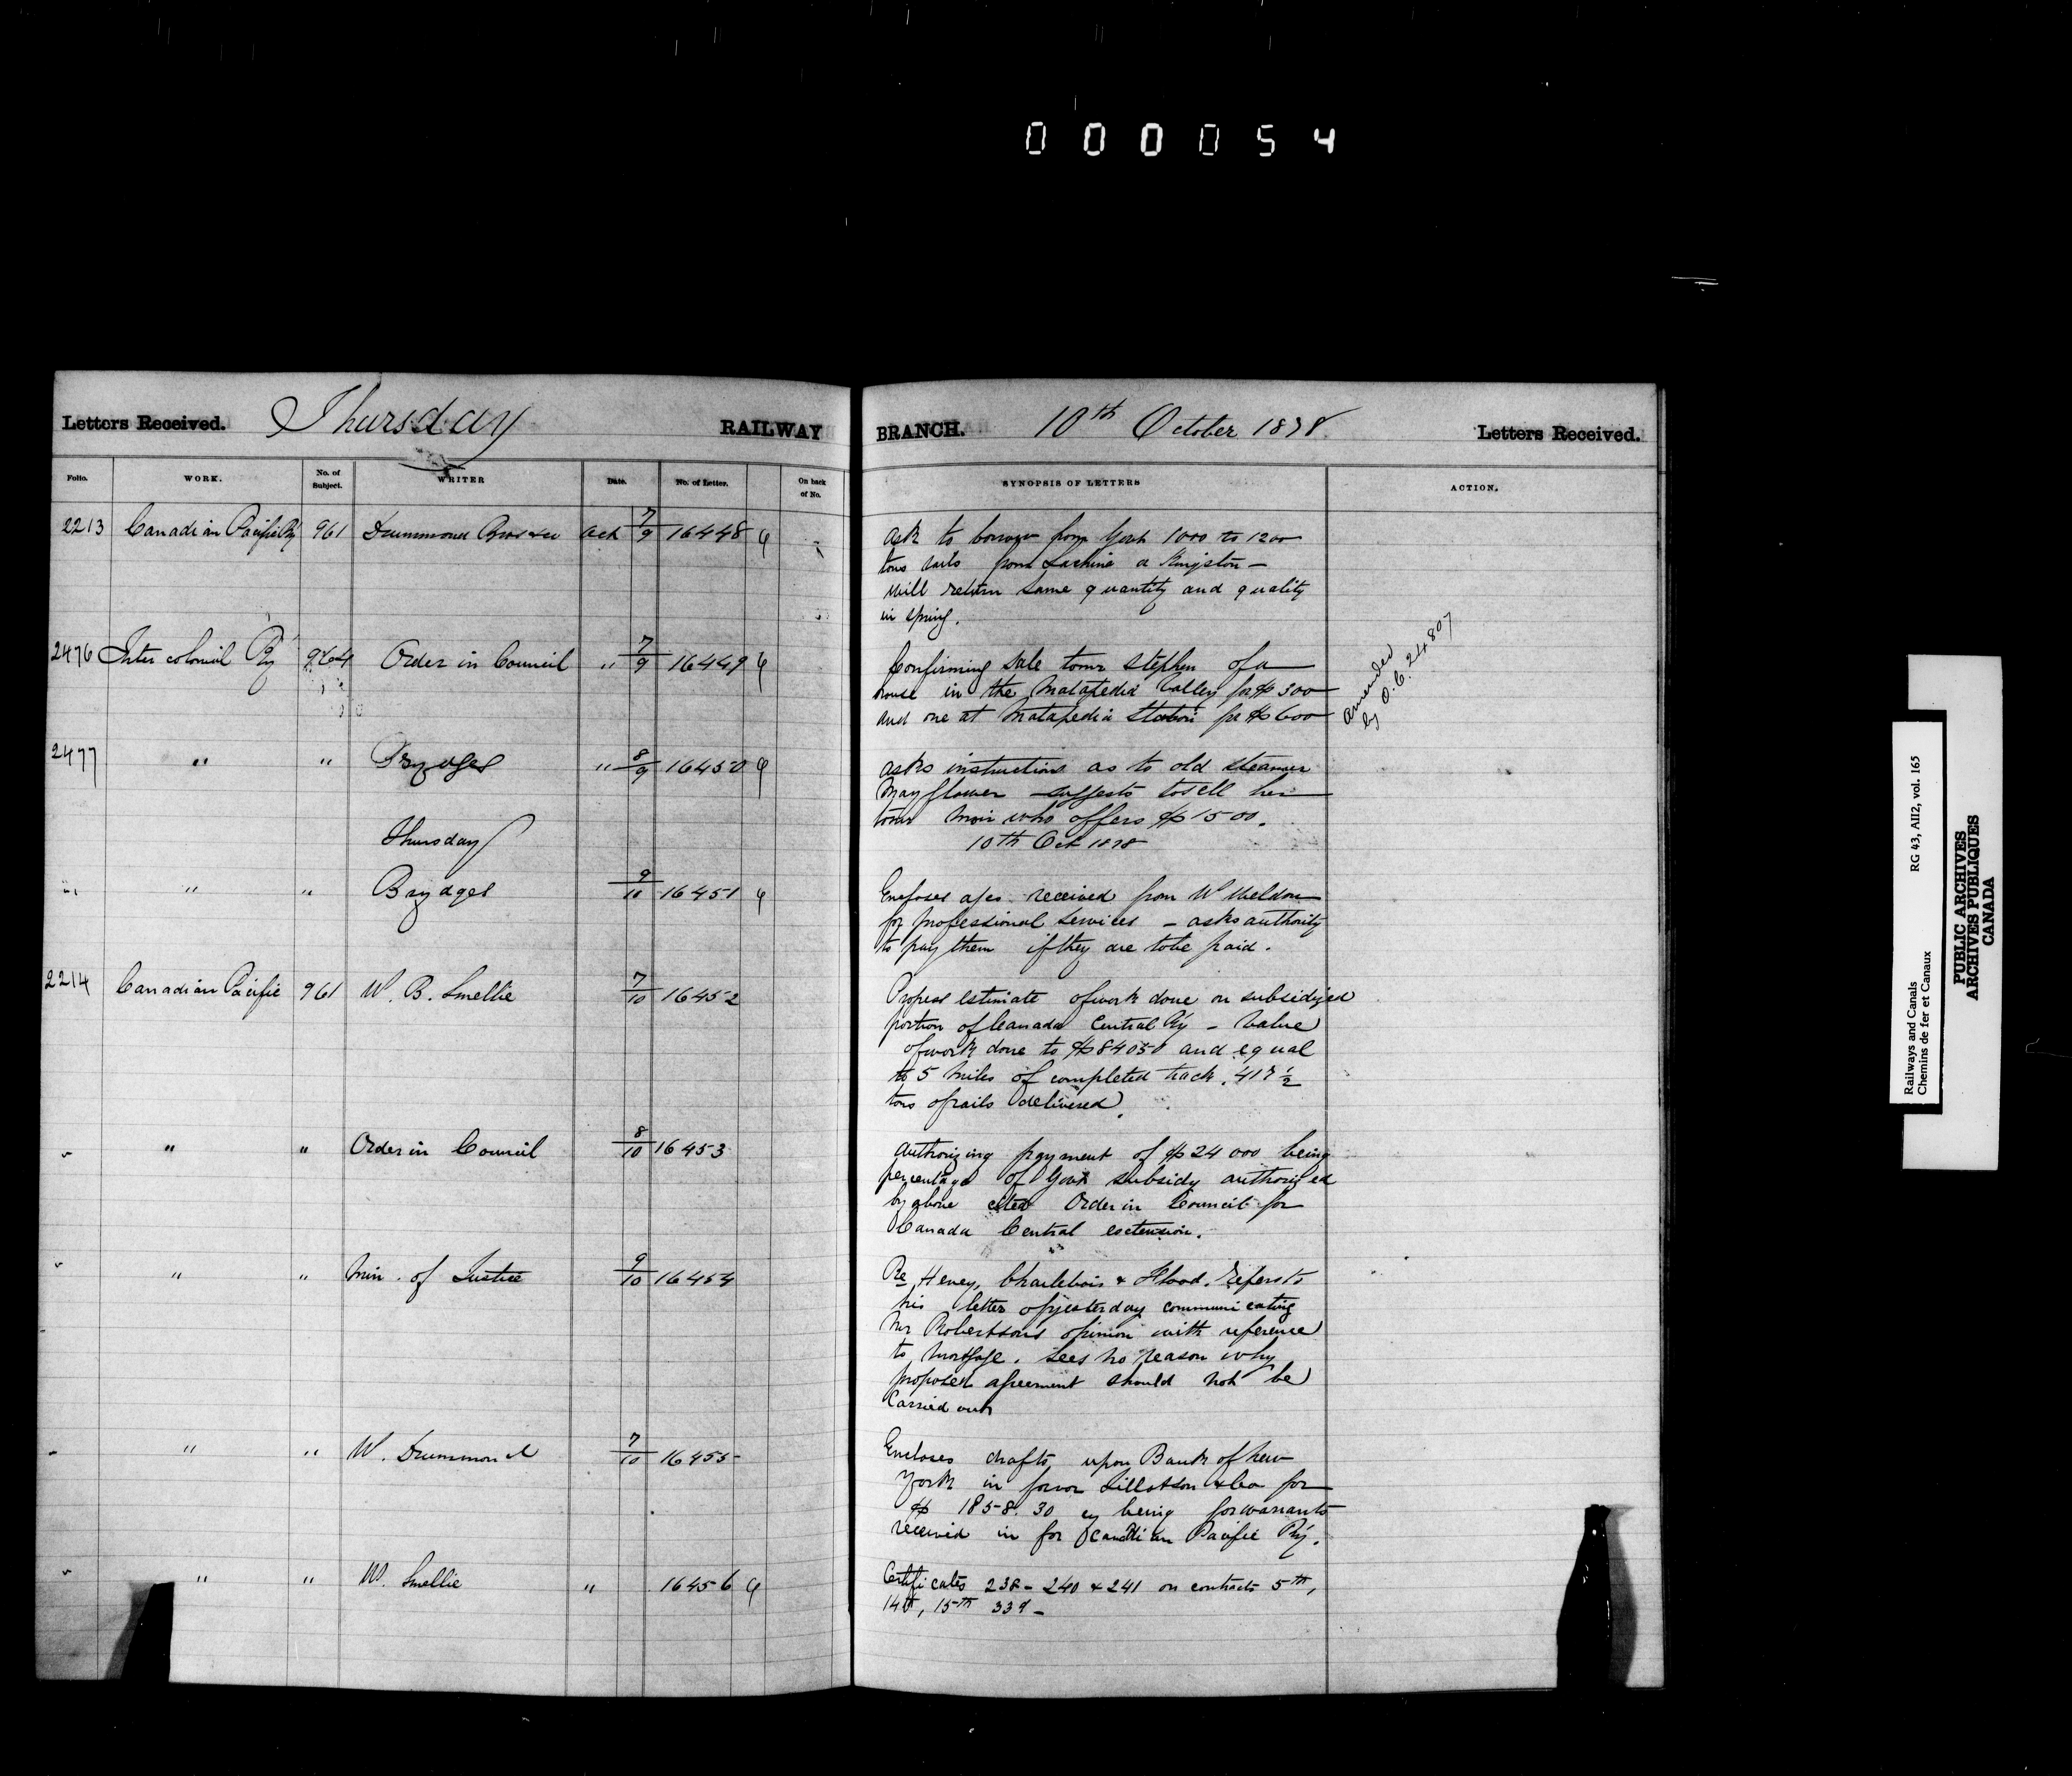 000054
Letters Received. Thursday RAILWAY BRANCH. 10th October 1878 Letters Received.
Folio. WORK. No. of Subject. WRITER Date. No. of Letter. On back of No. SYNOPSIS OF LETTERS ACTION.
2213 Canadian Pacific Ry 961 Drummond Bros & Co Oct 7/9 16448
Ask to borrow from Govt 1000 to 1200
tons rails from Lachine or Kingston —
will return same quantity and quality
in spring.
2476 Inter colonial Ry 964 Order in Council " 7/9 16449
Confirming sale to Mr Stephen of a
house in the Matapedia Valley for $300
and one at Matapedia Station for $600
amended
by O.C. 24,807
2477 " " Brydges " 8/9 16450
asks instructions as to old steamer
Mayflower — suggests to sell her
to Mr Moir who offers $1500.
Thursday 10th Oct 1878
" " " Brydges 9/10 16451
Encloses a/cs received from W Weldon
for professional services — asks authority
to pay them if they are to be paid.
2214 Canadian Pacific 961 W. B. Smellie 7/10 16452
Progress estimate of work done on subsidized
portion of Canada Central Ry — Value
of work done to $84050 and equal
to 5 miles of completed track. 417 1/2
tons of rails delivered.
" " " Order in Council 8/10 16453
Authorizing payment of $24000 being
percentage of Govt subsidy authorized
by above cited Order in Council for
Canada Central extension.
" " " Min. of Justice 9/10 16454
Re Heney, Charlebois & Flood. Refers to
his letter of yesterday communicating
Mr Robertson's opinion with reference
to mortgage. Sees no reason why
proposed agreement should not be
carried out
" " " W. Drummond 7/10 16455
Encloses drafts upon Bank of New
York in favor Tillotson & Co for
$1858.30 cy being for warrants
received in for Canadian Pacific Ry.
" " " W. Smellie " 16456
Certificates 238 - 240 & 241 on contracts 5th,
14th, 15th 33d —
Railways and Canals RG 43, AII2, vol. 165
Chemins de fer et Canaux
PUBLIC ARCHIVES
ARCHIVES PUBLIQUES
CANADA